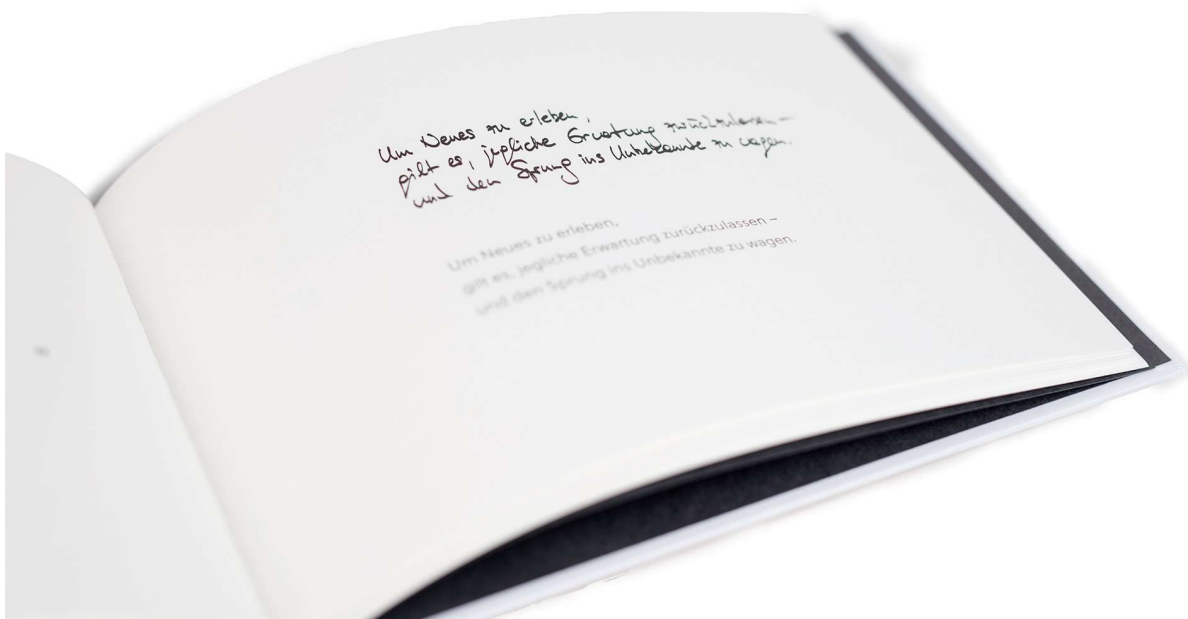 Um Neues zu erleben,
gilt es, jegliche Erwartung zurückzulassen –
und den Sprung ins Unbekannte zu wagen.
Um Neues zu erleben,
gilt es, jegliche Erwartung zurückzulassen –
und den Sprung ins Unbekannte zu wagen.